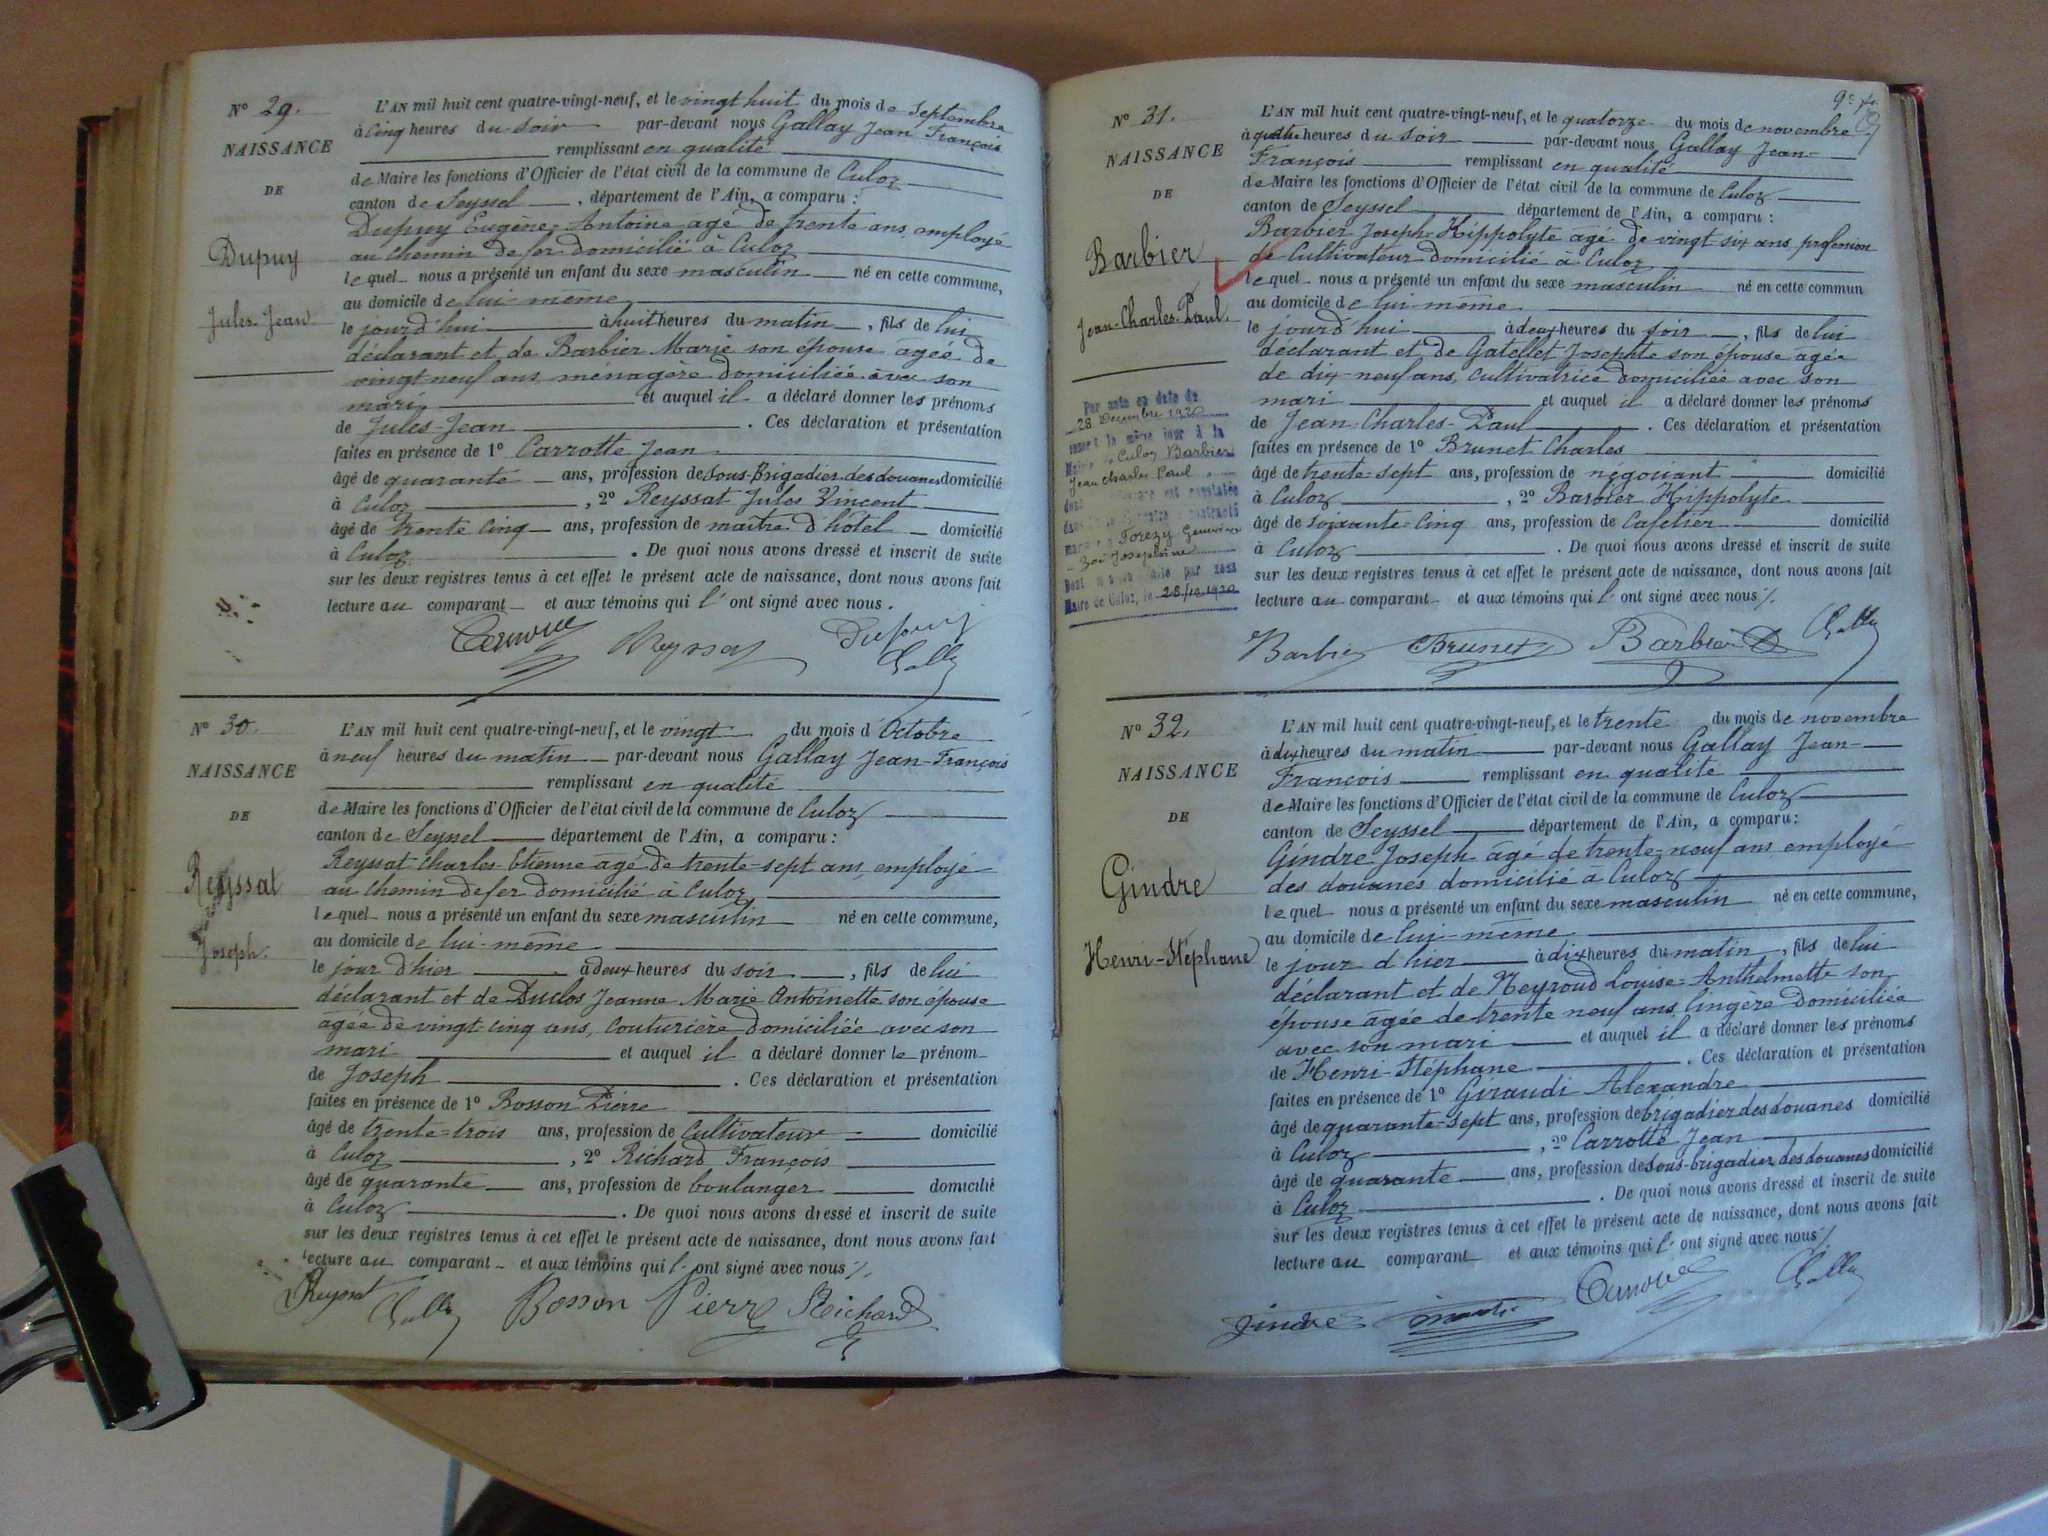 N° 29.
NAISSANCE
DE
Dupuy
Jules-Jean
L'AN mil huit cent quatre-vingt-neuf, et le vingt huit du mois de Septembre
à cinq heures du soir par-devant nous Gallay Jean François
remplissant en qualité
de Maire les fonctions d'Officier de l'état civil de la commune de Culoz
canton de Seyssel, département de l'Ain, a comparu :
Dupuy Eugène-Antoine agé de trente ans employé
au chemin de fer domicilié à Culoz
lequel nous a présenté un enfant du sexe masculin né en cette commune,
au domicile de lui-même
le jourd'hui à huit heures du matin, fils de lui
déclarant et de Barbier Marie son épouse agée de
vingt-neuf ans, ménagère domiciliée avec son
mari et auquel il a déclaré donner les prénoms
de Jules-Jean. Ces déclaration et présentation
faites en présence de 1° Carrotte Jean
âgé de quarante ans, profession de Sous-Brigadier des douanes domicilié
à Culoz, 2° Reyssat Jules Vincent
âgé de trente cinq ans, profession de maître d'hôtel domicilié
à Culoz. De quoi nous avons dressé et inscrit de suite
sur les deux registres tenus à cet effet le présent acte de naissance, dont nous avons fait
lecture au comparant et aux témoins qui l' ont signé avec nous.
Reyssat Dupuy
N° 30.
NAISSANCE
DE
Reyssat
Joseph.
L'AN mil huit cent quatre-vingt-neuf, et le vingt du mois d'Octobre
à neuf heures du matin par-devant nous Gallay Jean-François
remplissant en qualité
de Maire les fonctions d'Officier de l'état civil de la commune de Culoz
canton de Seyssel département de l'Ain, a comparu :
Reyssat Charles-Etienne âgé de trente-sept ans, employé
au chemin de fer domicilié à Culoz
lequel nous a présenté un enfant du sexe masculin né en cette commune,
au domicile de lui-même
le jour d'hier à deux heures du soir, fils de lui
déclarant et de Duclos Jeanne Marie Antoinette son épouse
âgée de vingt-cinq ans, couturière domiciliée avec son
mari et auquel il a déclaré donner le prénom
de Joseph. Ces déclaration et présentation
faites en présence de 1° Bosson Pierre
âgé de trente-trois ans, profession de cultivateur domicilié
à Culoz, 2° Richard François
âgé de quarante ans, profession de boulanger domicilié
à Culoz. De quoi nous avons dressé et inscrit de suite
sur les deux registres tenus à cet effet le présent acte de naissance, dont nous avons fait
lecture au comparant et aux témoins qui l' ont signé avec nous
Reyssat Bosson Pierre Richard
9e
N° 31.
NAISSANCE
DE
Barbier
Jean-Charles-Paul.
Par acte en date du
28 Décembre 1920
le même jour à la
Culoz Barbier
Jean Charles Paul
Josephine
par nous
Maire de Culoz, le 28/12 1920
L'AN mil huit cent quatre-vingt-neuf, et le quatorze du mois de novembre
à quatre heures du soir par-devant nous Gallay Jean-
François remplissant en qualité
de Maire les fonctions d'Officier de l'état civil de la commune de Culoz
canton de Seyssel département de l'Ain, a comparu :
Barbier Joseph-Hippolyte agé de vingt six ans, profession
de cultivateur domicilié à Culoz
lequel nous a présenté un enfant du sexe masculin né en cette commun
au domicile de lui-même
le jourd'hui à deux heures du soir, fils de lui
déclarant et de Gatellet Josephte son épouse agée
de dix-neuf ans, cultivatrice domiciliée avec son
mari et auquel il a déclaré donner les prénoms
de Jean-Charles-Paul. Ces déclaration et présentation
faites en présence de 1° Brunet Charles
âgé de trente-sept ans, profession de négociant domicilié
à Culoz, 2° Barbier Hippolyte
âgé de soixante-cinq ans, profession de cafetier domicilié
à Culoz. De quoi nous avons dressé et inscrit de suite
sur les deux registres tenus à cet effet le présent acte de naissance, dont nous avons fait
lecture au comparant et aux témoins qui l' ont signé avec nous
Barbier Brunet Barbier
N° 32.
NAISSANCE
DE
Gindre
Henri-Stéphane
L'AN mil huit cent quatre-vingt-neuf, et le trente du mois de novembre
à dix heures du matin par-devant nous Gallay Jean-
François remplissant en qualité
de Maire les fonctions d'Officier de l'état civil de la commune de Culoz
canton de Seyssel département de l'Ain, a comparu :
Gindre Joseph âgé de trente-neuf ans employé
des douanes domicilié à Culoz
lequel nous a présenté un enfant du sexe masculin né en cette commune,
au domicile de lui-même
le jour d'hier à dix heures du matin, fils de lui
déclarant et de Neyroud Louise-Anthelmette son
épouse âgée de trente neuf ans, lingère domiciliée
avec son mari et auquel il a déclaré donner les prénoms
de Henri-Stéphane. Ces déclaration et présentation
faites en présence de 1° Giraudi Alexandre
âgé de quarante-sept ans, profession de brigadier des douanes domicilié
à Culoz, 2° Carrotte Jean
âgé de quarante ans, profession de sous-brigadier des douanes domicilié
à Culoz. De quoi nous avons dressé et inscrit de suite
sur les deux registres tenus à cet effet le présent acte de naissance, dont nous avons fait
lecture au comparant et aux témoins qui l' ont signé avec nous
Gindre